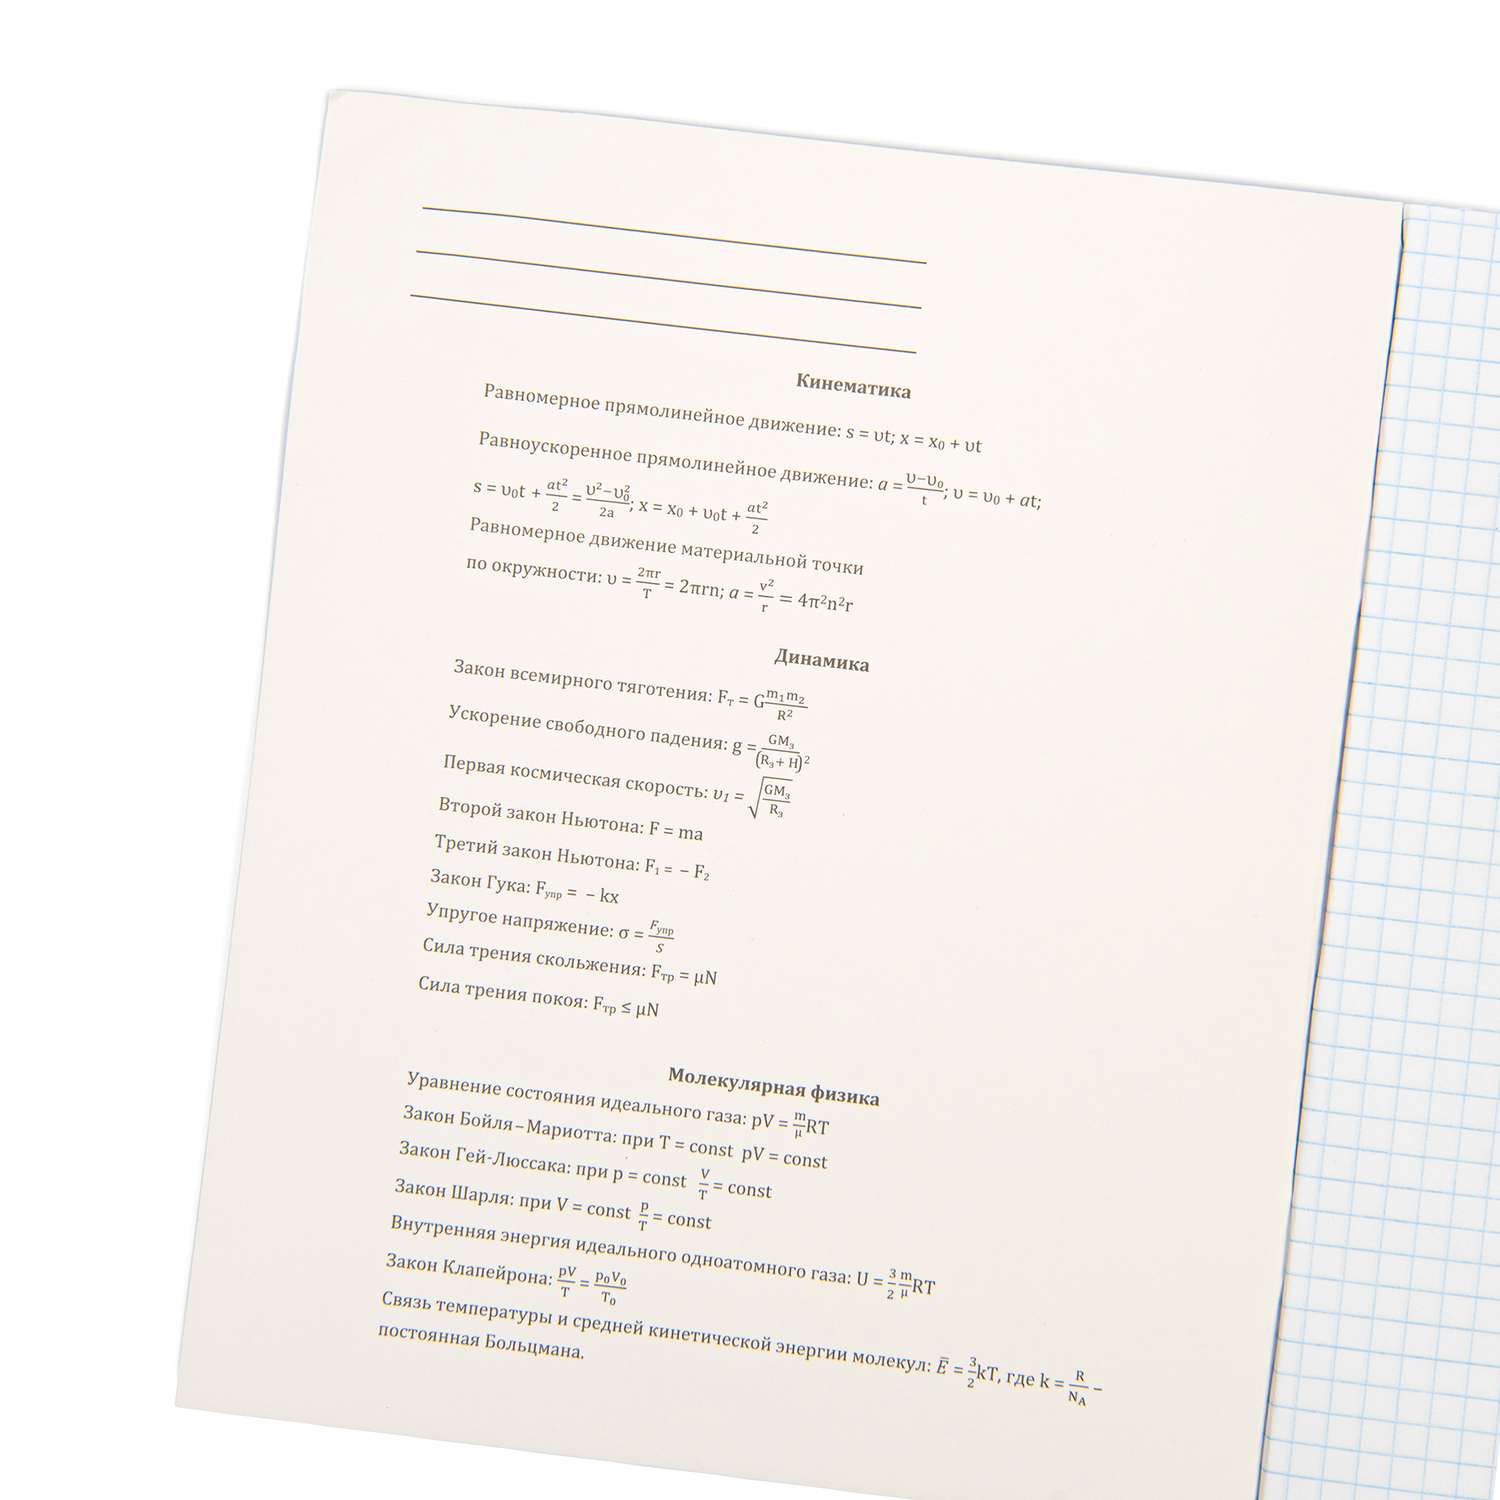 Кинематика
Равномерное прямолинейное движение: s = υt; x = x₀ + υt
Равноускоренное прямолинейное движение: a = (υ−υ₀)/t; υ = υ₀ + at;
s = υ₀t + at²/2 = (υ²−υ₀²)/2a; x = x₀ + υ₀t + at²/2
Равномерное движение материальной точки
по окружности: υ = 2πr/T = 2πrn; a = v²/r = 4π²n²r
Динамика
Закон всемирного тяготения: Fт = G m₁m₂/R²
Ускорение свободного падения: g = GMз/(Rз + H)²
Первая космическая скорость: υ₁ = √(GMз/Rз)
Второй закон Ньютона: F = ma
Третий закон Ньютона: F₁ = − F₂
Закон Гука: Fупр = − kx
Упругое напряжение: σ = Fупр/S
Сила трения скольжения: Fтр = μN
Сила трения покоя: Fтр ≤ μN
Молекулярная физика
Уравнение состояния идеального газа: pV = m/μ RT
Закон Бойля–Мариотта: при T = const pV = const
Закон Гей-Люссака: при p = const V/T = const
Закон Шарля: при V = const p/T = const
Внутренняя энергия идеального одноатомного газа: U = 3/2 m/μ RT
Закон Клапейрона: pV/T = p₀V₀/T₀
Связь температуры и средней кинетической энергии молекул: Ē = 3/2 kT, где k = R/N_A –
постоянная Больцмана.